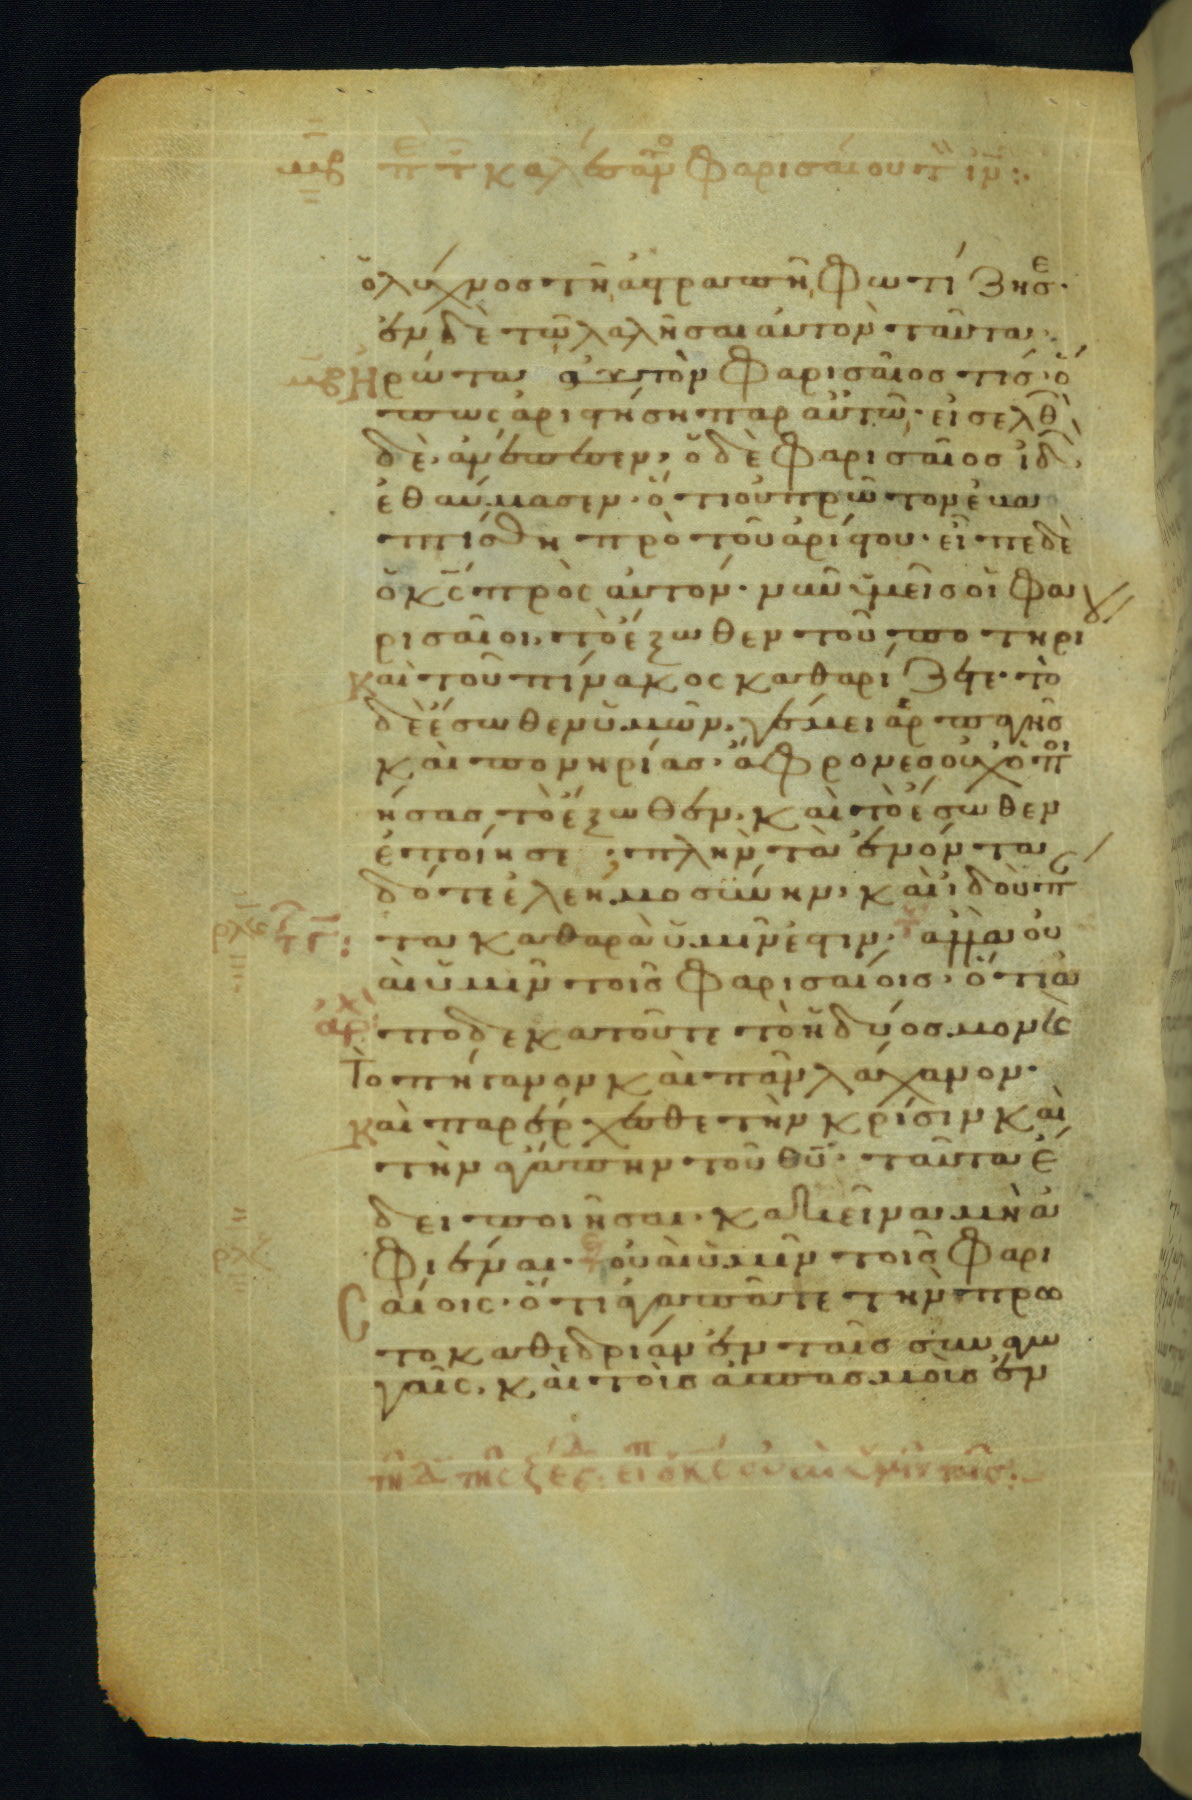 μβ πε τ καλέσαντο Φαρισαίου τ ιν:
ὁ λύχνος τῆ ἀστραπῆ, φωτίζησε·
ἐν δὲ τῶ λαλῆσαι αὐτὸν ταῦτα·
μβ Ἠρώτα αὐτὸν Φαρισαῖος τίς· ὅ
πως ἀριστήση παρ αὐτῶ· εἰσελθ
δὲ, ἀνέπεσεν, ὁ δὲ Φαρισαῖος ἰδ,
ἐθαύμασεν· ὅτι οὐ πρῶτον ἐβα
πτίσθη πρὸ τοῦ ἀρίστου· εἶπε δὲ
ὁ κς πρὸς αὐτόν· νῦν ὑμεῖς οἱ Φα
ρισαῖοι, τὸ ἔξωθεν τοῦ ποτηρι
καὶ τοῦ πίνακος καθαρίζετε· τὸ
δὲ ἔσωθεν ὑμῶν, γέμει ἁρπαγῆς
καὶ πονηρίας· ἄφρονες οὐχ ὁ ποι
ήσας τὸ ἔξωθεν, καὶ τὸ ἔσωθεν
ἐποίησε· πλὴν τὰ ἐνόντα
δότε ἐλεημοσύνην, καὶ ἰδοὺ π
ρλς τα καθαρὰ ὑμῖν ἐστιν· ἀλλὰ οὐ
αὶ ὑμῖν τοῖς Φαρισαίοις· ὅτι ἀ
αρχ ποδεκατοῦτε τὸ ἡδύοσμον κ
Τὸ πήγανον καὶ πᾶν λάχανον·
καὶ παρέρχεσθε τὴν κρίσιν καὶ
τὴν ἀγάπην τοῦ θυ· ταῦτα ἔ
δει ποιῆσαι· κακεῖνα μὴ ἀ
ρλζ φιέναι· οὐαὶ ὑμῖν τοῖς Φαρι
σαίοις· ὅτι ἀγαπᾶτε τὴν πρω
τοκαθεδρίαν ἐν ταῖς συναγω
γαῖς, καὶ τοὺς ἀσπασμοὺς ἐν
τῆ δ τῆς ς εἶπ ὁ κς οὐαὶ ὑμῖν τοῖς: